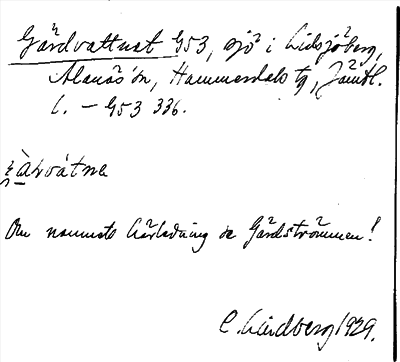 Gärdvattnet G53, sjö i Lidsjöberg,
Alanäs sn, Hammerdals tg, Jämtl.
l. – G53 336.
Om namnets härledning se Gärdströmmen!
C. Lindberg 1929.